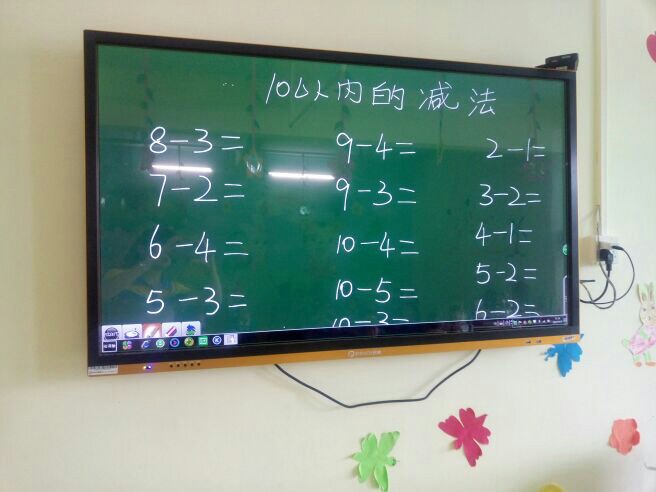 10以内的减法
8-3= 9-4= 2-1=
7-2= 9-3= 3-2=
6-4= 10-4= 4-1=
5-3= 10-5= 5-2=
10-3= 6-2=